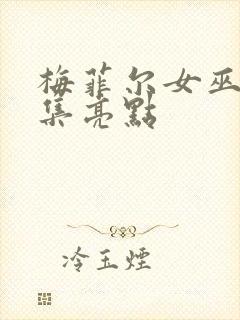 梅菲尔女巫
集亮點
冷玉煙